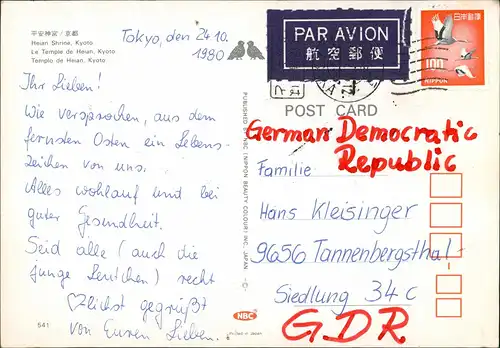 平安神宮／京都
Heian Shrine, Kyoto
Le Temple de Heian, Kyoto
Templo de Heian, Kyoto
Tokyo, den 24.10.
1980
Ihr Lieben!
Wie versprochen, aus dem
fernsten Osten ein Lebens-
zeichen von uns.
Alles wohlauf und bei
guter Gesundheit.
Seid alle (auch die
junge Leutchen) recht
♡lichst gegrüßt
von Euren Lieben.
541
PUBLISHED BY NBC (NIPPON BEAUTY COLOUR) INC., JAPAN
PAR AVION
航空郵便
日本郵便
100
NIPPON
POST CARD
German Democratic
Republic
Familie
Hans Kleisinger
9656 Tannenbergsthal
Siedlung 34c
GDR
NBC